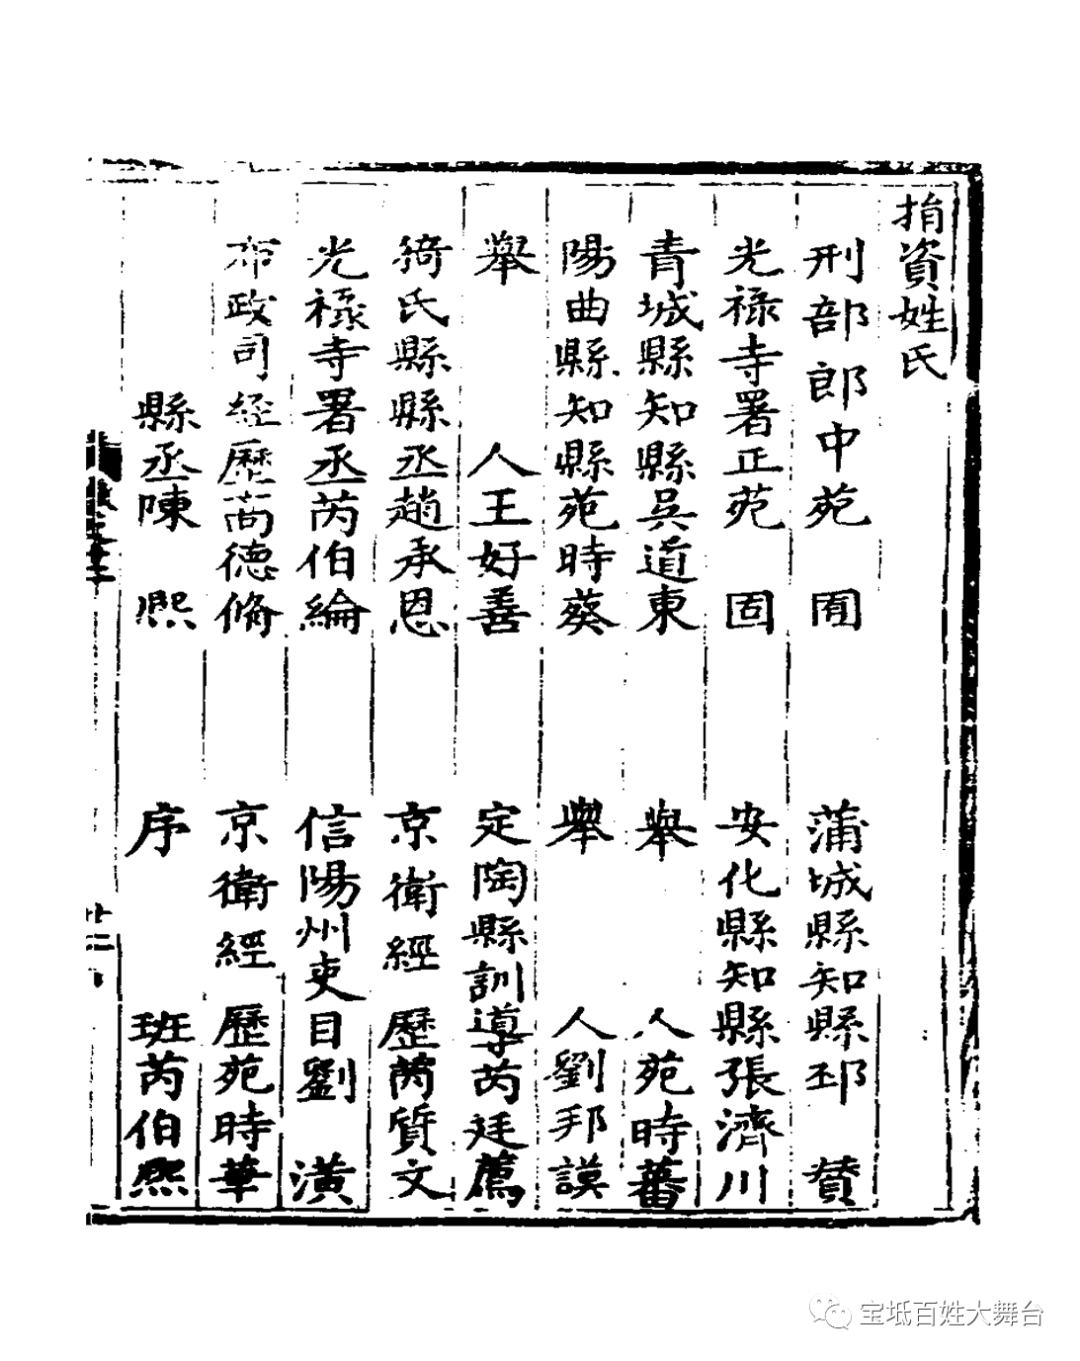 捐資姓氏
刑部郎中苑囿 蒲城縣知縣邳贊
光禄寺署正苑固 安化縣知縣張濟川
青城縣知縣吳道東 舉人苑時蕃
陽曲縣知縣苑時葵 舉人劉邦謨
舉人王好善 定陶縣訓導芮廷薦
猗氏縣縣丞趙承恩 京衛經歷芮質文
光禄寺署丞芮伯綸 信陽州吏目劉潢
布政司經歷芮德脩 京衛經歷苑時華
縣丞陳熙 序班芮伯熙
廿二
宝坻百姓大舞台